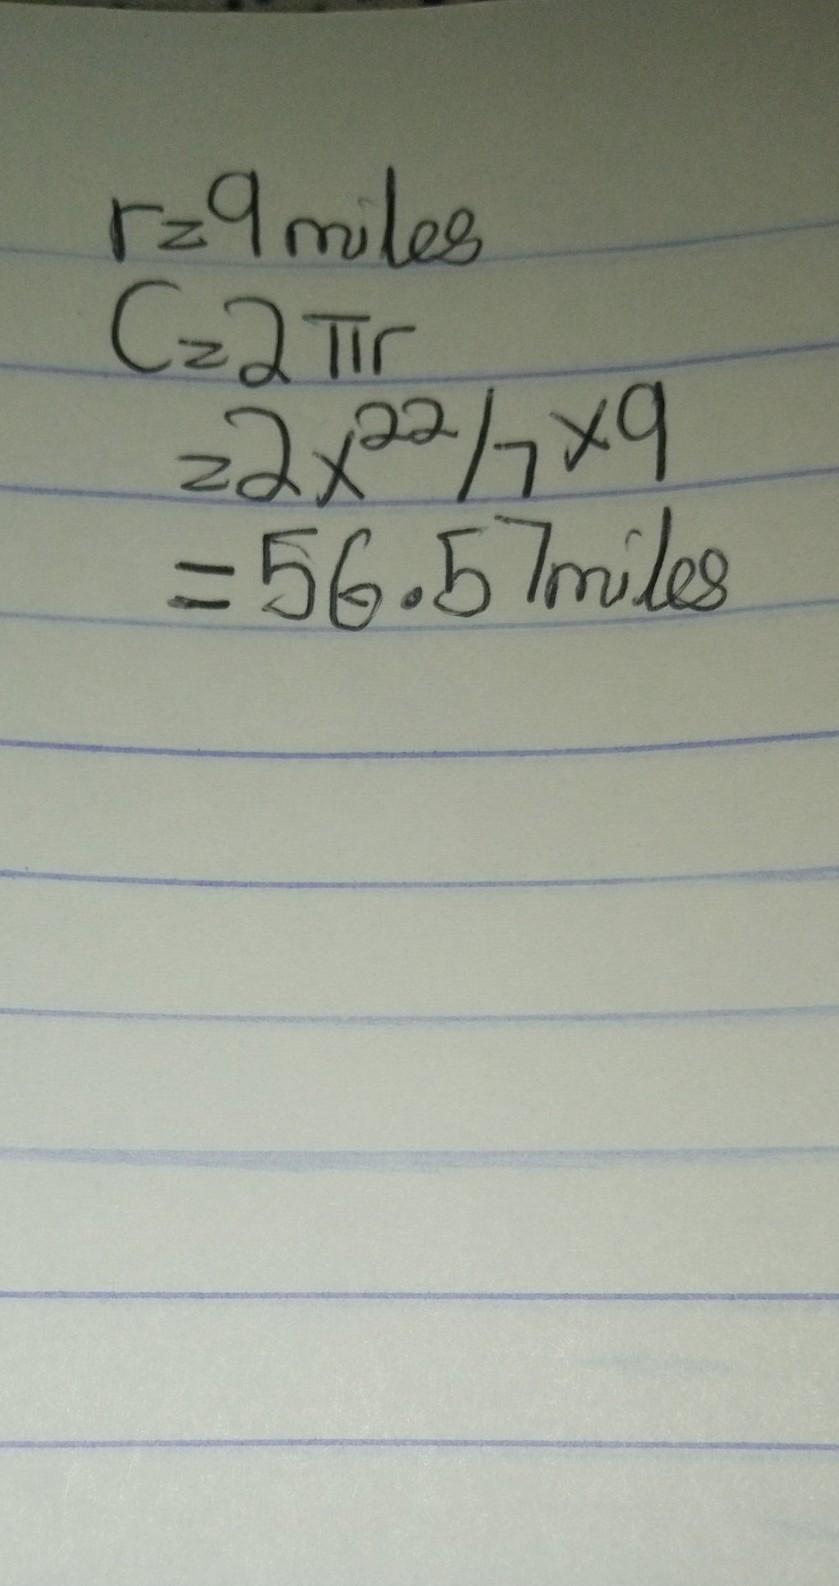 r=9miles
C=2πr
=2x22/7x9
=56.57miles